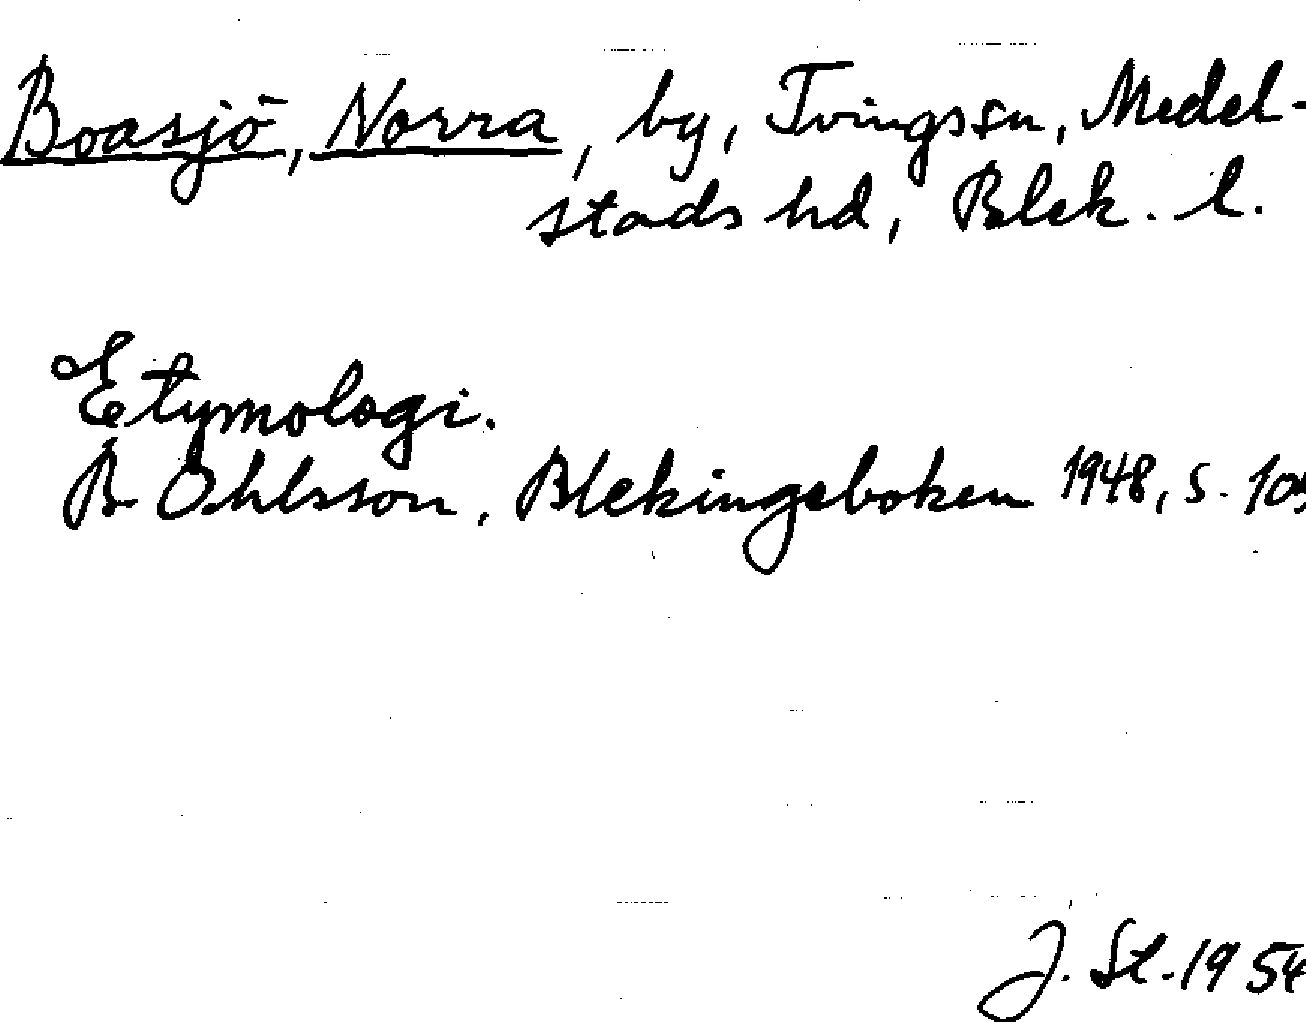 Boasjö, Norra, by, Tvings sn, Medel-
stads hd, Blek. l.
Etymologi.
B Ohlsson, Blekingeboken 1948, s. 105
J. St. 1954